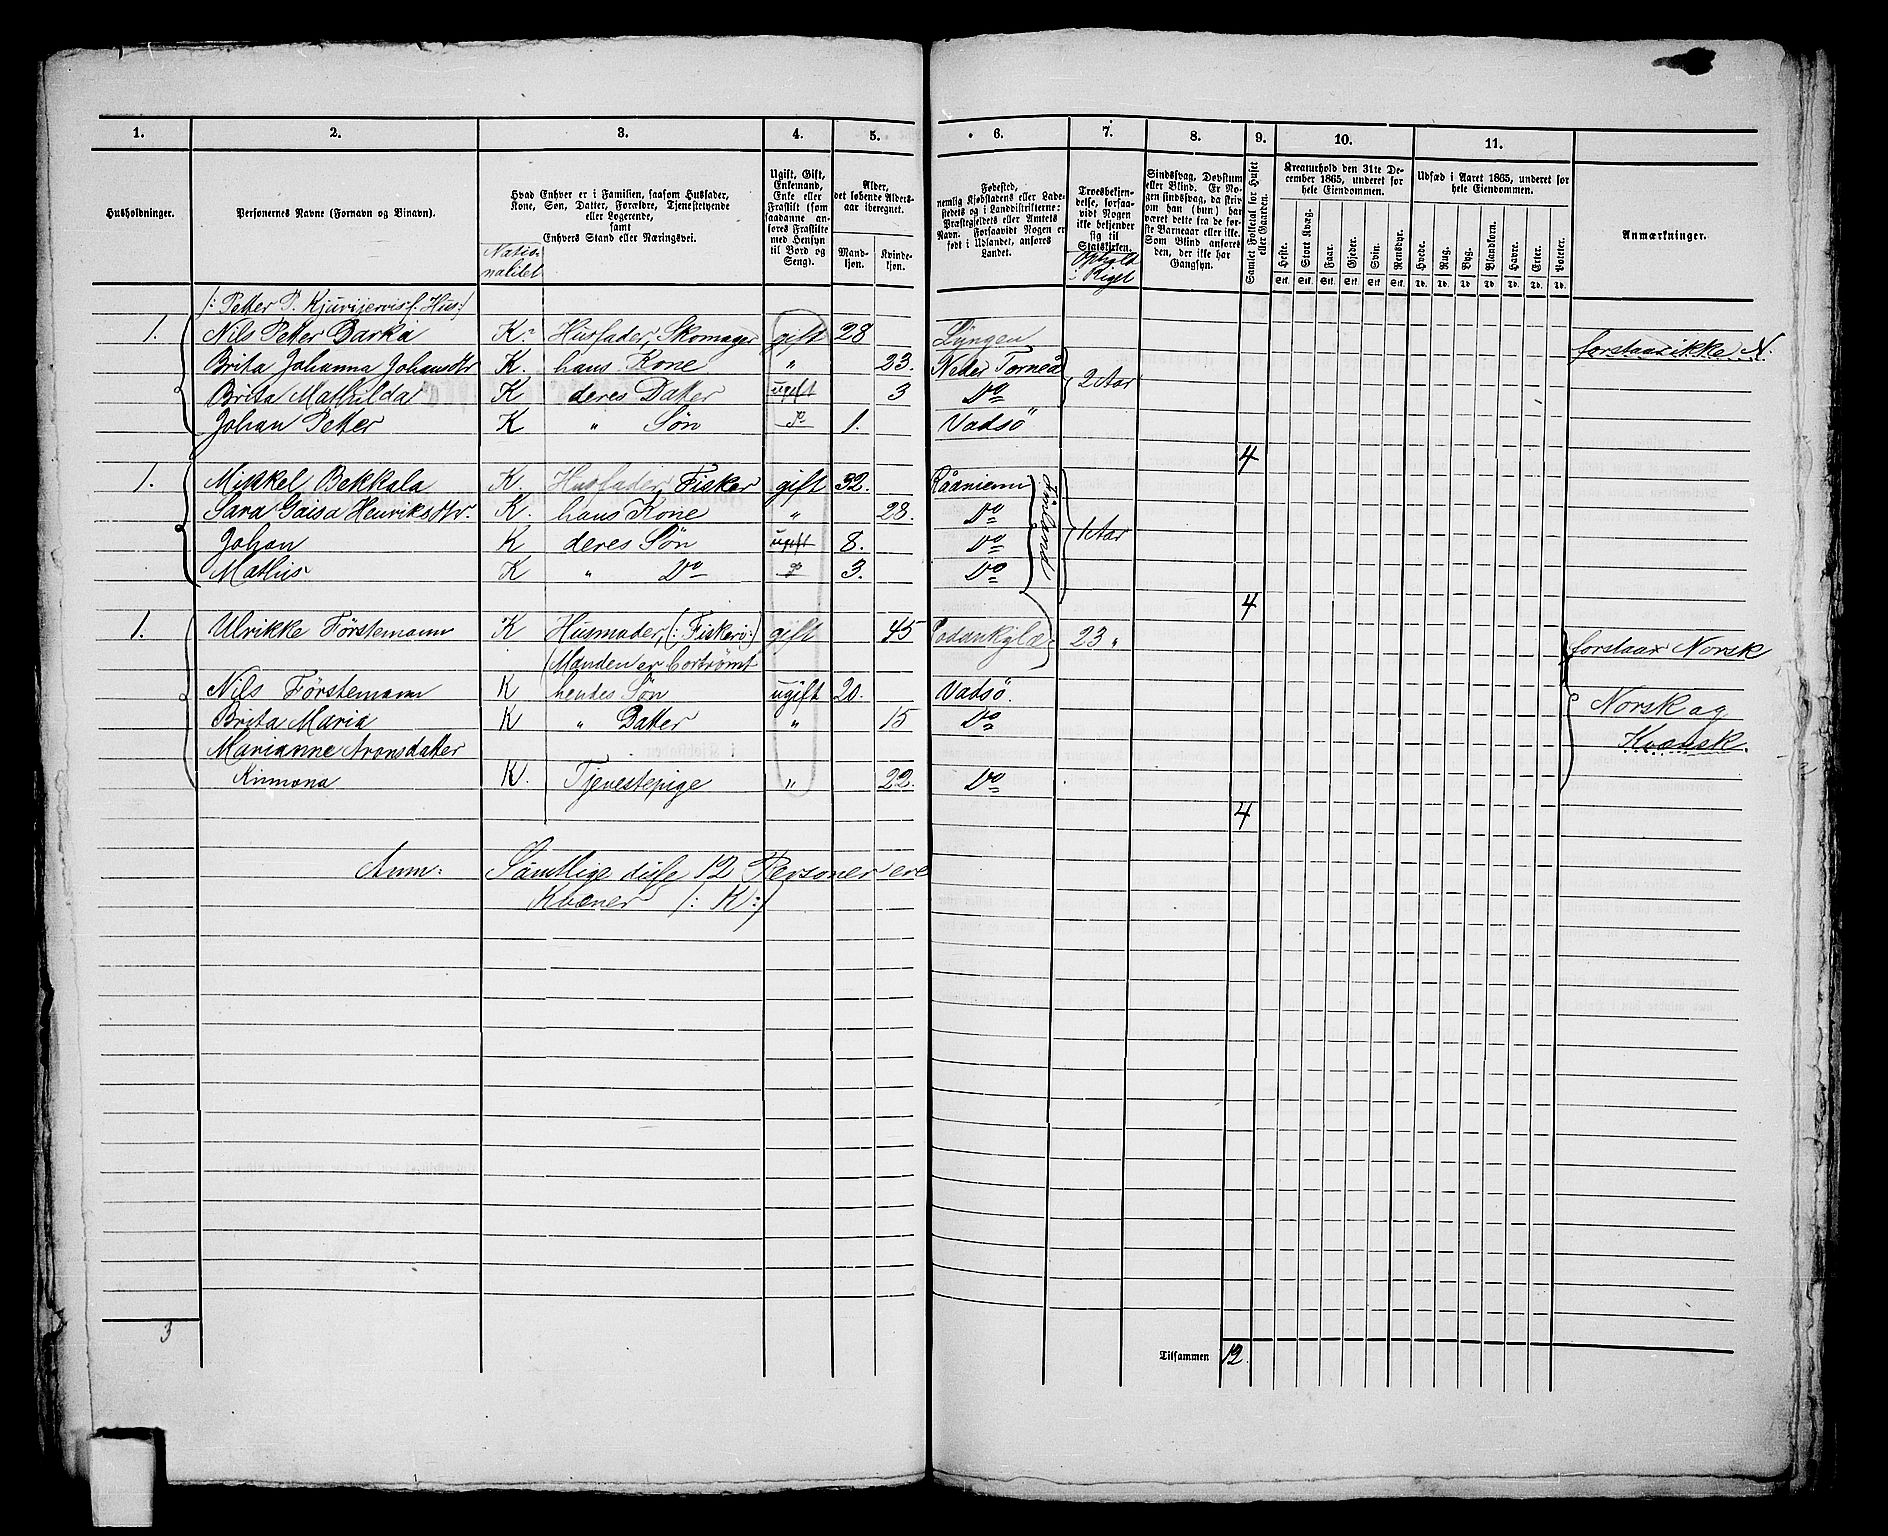 1. 2. 3. 4. 5. 6. 7. 8. 9. 10. 11.
Husholdninger.
Personernes Navne (Fornavn og Binavn).
Hvad Enhver er i Familien, saasom Husfader, Kone, Søn, Datter, Forældre, Tjenestetyende eller Logerende, samt Enhvers Stand eller Næringsvei.
Natio-
nalitet
Ugift, Gift, Enkemand, Enke eller Fraskilt (som saadanne anføres Fraskilte med Hensyn til Bord og Seng).
Alder, det løbende Aldersaar iberegnet.
Mandkjøn. Kvindekjøn.
Fødested, nemlig Kjøbstadens eller Ladestedets og i Landdistrikterne: Præstegjeldets eller Amtets Navn. Forsaavidt Nogen er født i Udlandet, anføres Landet.
Troesbekjendelse, forsaavidt Nogen ikke bekjender sig til Statskirken.
Ophold
i Riget
Sindssvag, Døvstum eller Blind. Er Nogen sindssvag, da skriv om han (hun) har været dette fra de første Barneaar eller ikke. Som Blind anføres den, der ikke har Gangsyn.
Samlet Folketal for Huset eller Gaarden.
Kreaturhold den 31te December 1865, underet for hele Eiendommen.
Heste. Stort Kvæg. Faar. Gjeder. Svin. Rensdyr.
Stk. Stk. Stk. Stk. Stk. Stk.
Udsæd i Aaret 1865, underet for hele Eiendommen.
Hvede. Rug. Byg. Blandkorn. Havre. Erter. Poteter.
Td. Td. Td. Td. Td. Td. Td.
Anmærkninger.
/: Petter P. Kjuvijervis f. Hus:/
1. Nils Petter Barka K. Husfader, Skomager gift 28 Lyngen
Brita Johanna Johansdtr K. hans Kone " 23. Neder Torneå forstaar ikke N.
Brita Mathilda K deres Datter ugift 3 Do 2 Aar
Johan Petter K " Søn Do 1. Vadsö
4
1. Mikkel Bekkala K. Husfader Fisker gift 32.
Sara Gaisa Henriksdtr. K. hans Kone " 28. Do Finland
Johan K deres Søn ugift 8. Do 1 Aar
Mathis K " Do Do 3. Do
4
1. Ulrikke Förstemann K Husmoder, (: Fiskeri :) gift 45 23 " forstaar Norsk
(Manden er bortrömt
Nils Förstemann K hendes Søn ugift 20. Vadsö
Brita Maria K " Datter " 15 Do Norsk og
Marianne Aronsdatter Kvænsk.
K. Tjenestepige " 22. Do
4
Anm: Samtlige disse 12 Personer ere
Kvæner /: K :/
3
Tilsammen 12.